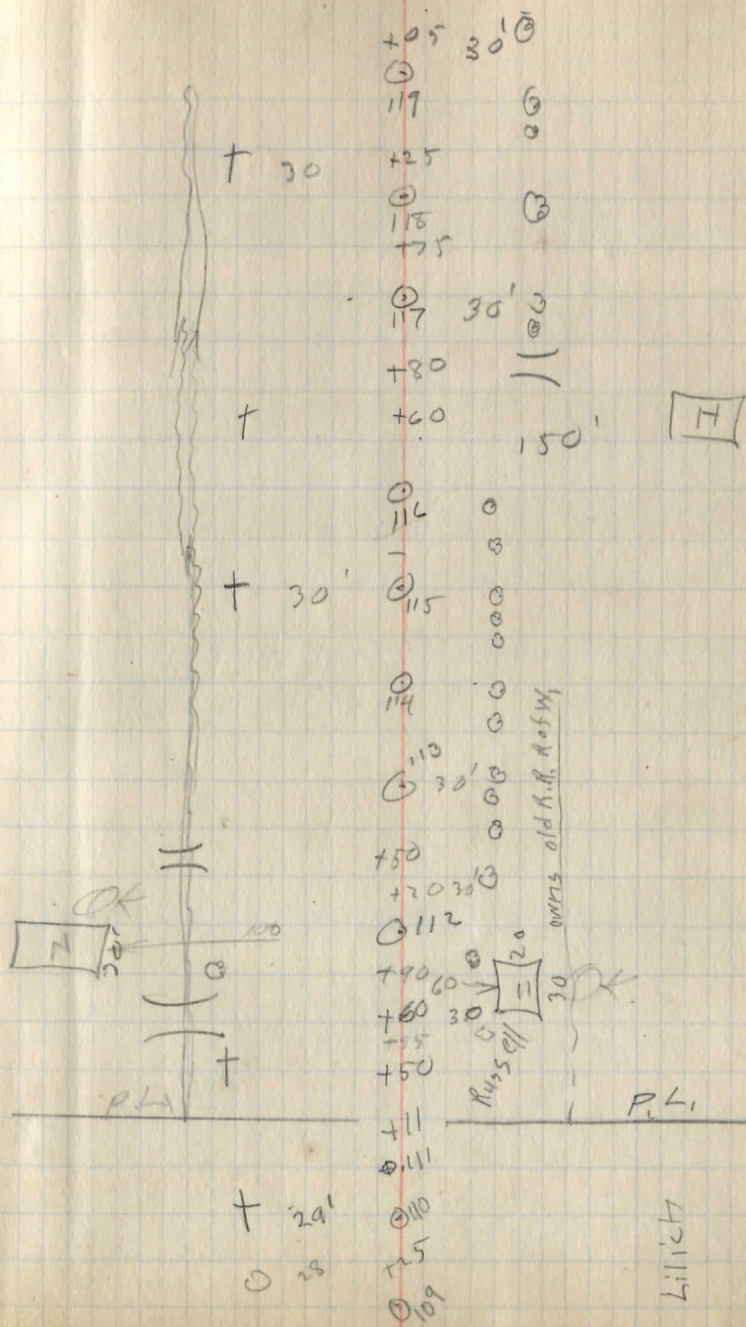 +05 30'
119
+25
30
118
+75
117 30'
+80
+60
150'
H
116
115
30'
114
113
30'
owns old R.R. R of W,
+50
+20 30'
112
100
+90
60
20
30
+60 30
+55
+50
Russell
P.L.
P.L.
+11
111
110
29'
+25
28
109
Lilich